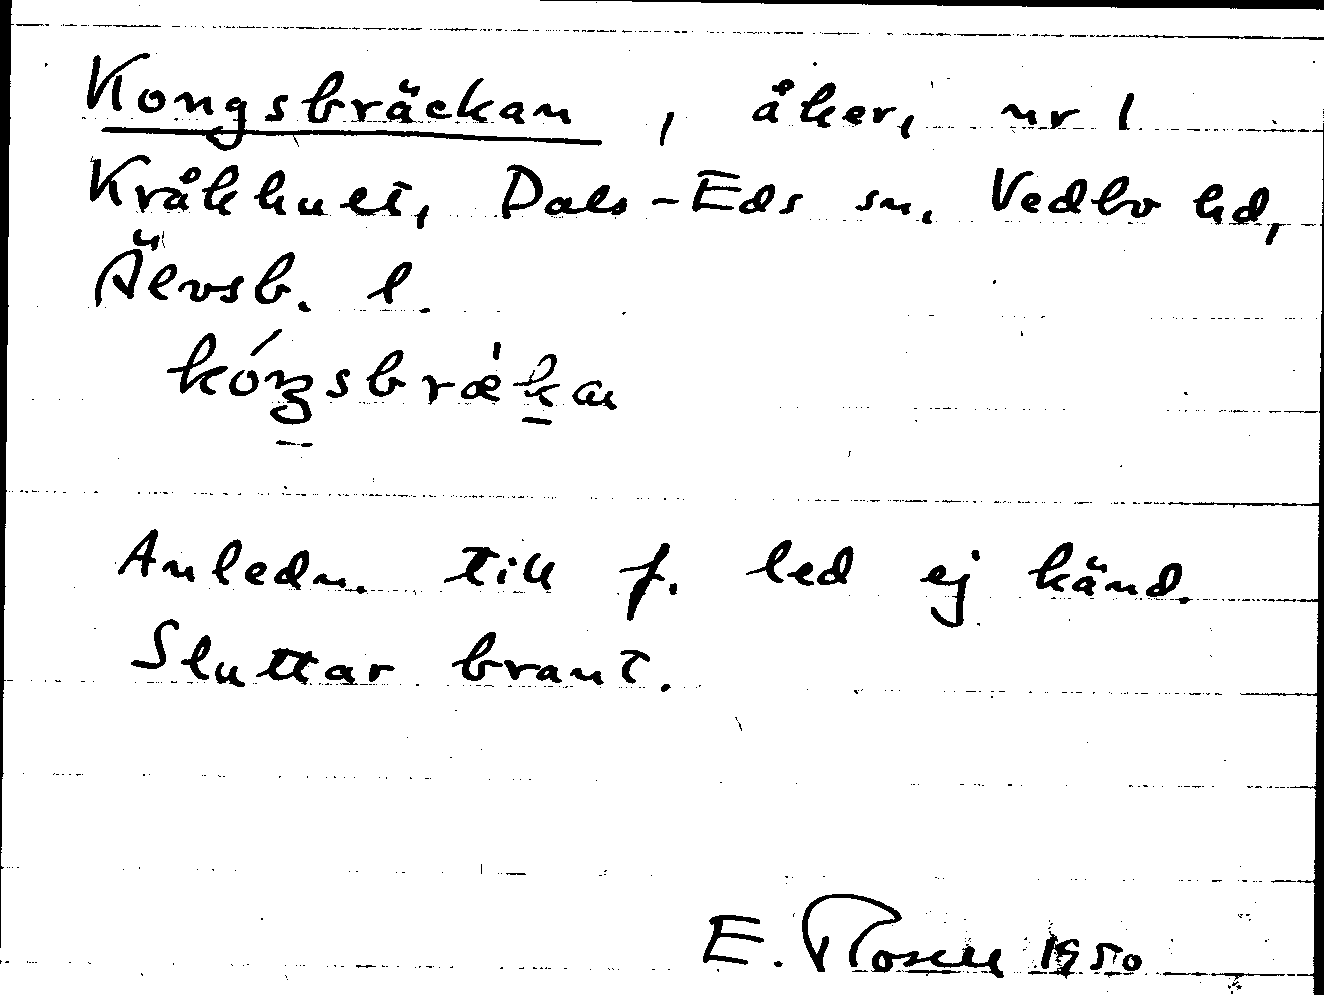 Kongsbräckan, åker, nr 1
Kråkhult, Dals-Eds sn. Vedbo hd,
Älvsb. l.
kóŋsbræ̀kan
Anledn. till f. led ej känd.
Sluttar brant.
E. Rosell 1950